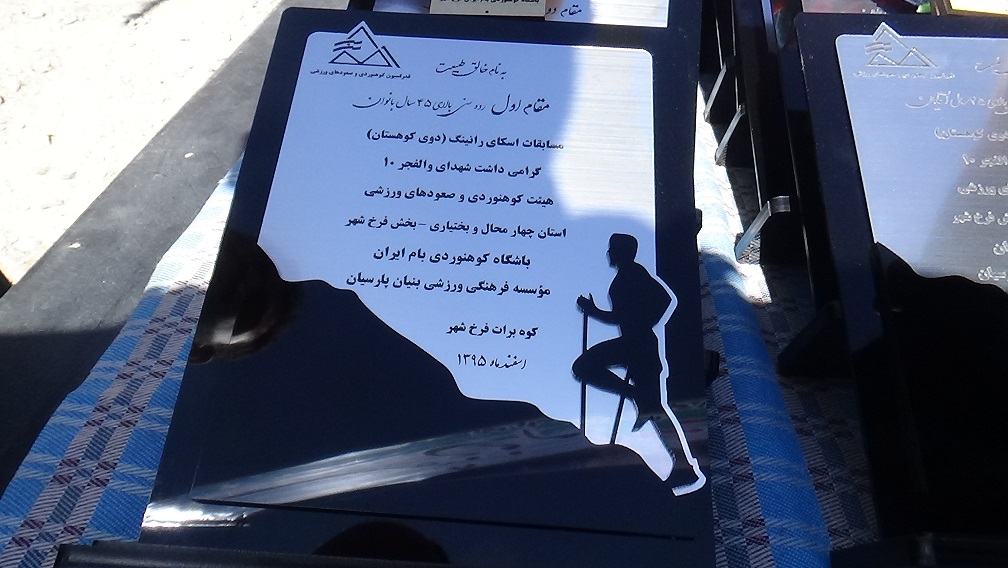 مقام دو
فدراسیون کوهنوردی و صعودهای ورزشی
به نام خالق طبیعت
مقام اول رده سنی بالای ۴۵ سال بانوان
مسابقات اسکای رانینگ (دوی کوهستان)
گرامی داشت شهدای والفجر ۱۰
هیئت کوهنوردی و صعودهای ورزشی
استان چهار محال و بختیاری – بخش فرخ شهر
باشگاه کوهنوردی بام ایران
مؤسسه فرهنگی ورزشی بنیان پارسیان
کوه برات فرخ شهر
اسفند ماه ۱۳۹۵